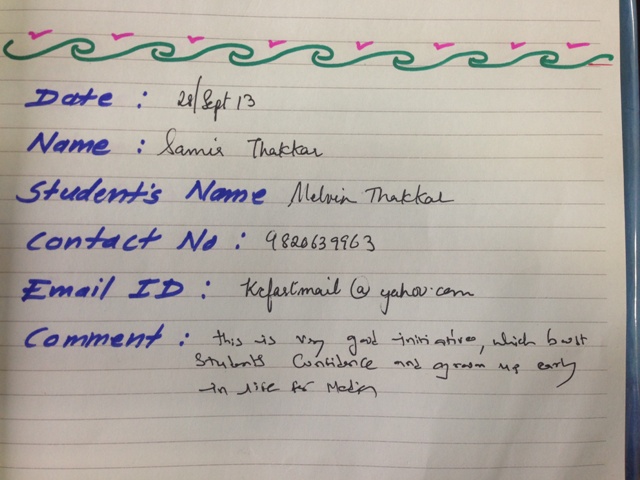 Date : 28/Sept 13
Name : Samir Thakkar
Student's Name Melvin Thakkar
Contact No : 9820639963
Email ID : Kcfastmail@yahoo.com
Comment : this is very good initiative, which bust
Students Confidence and grow up early
in life for Media